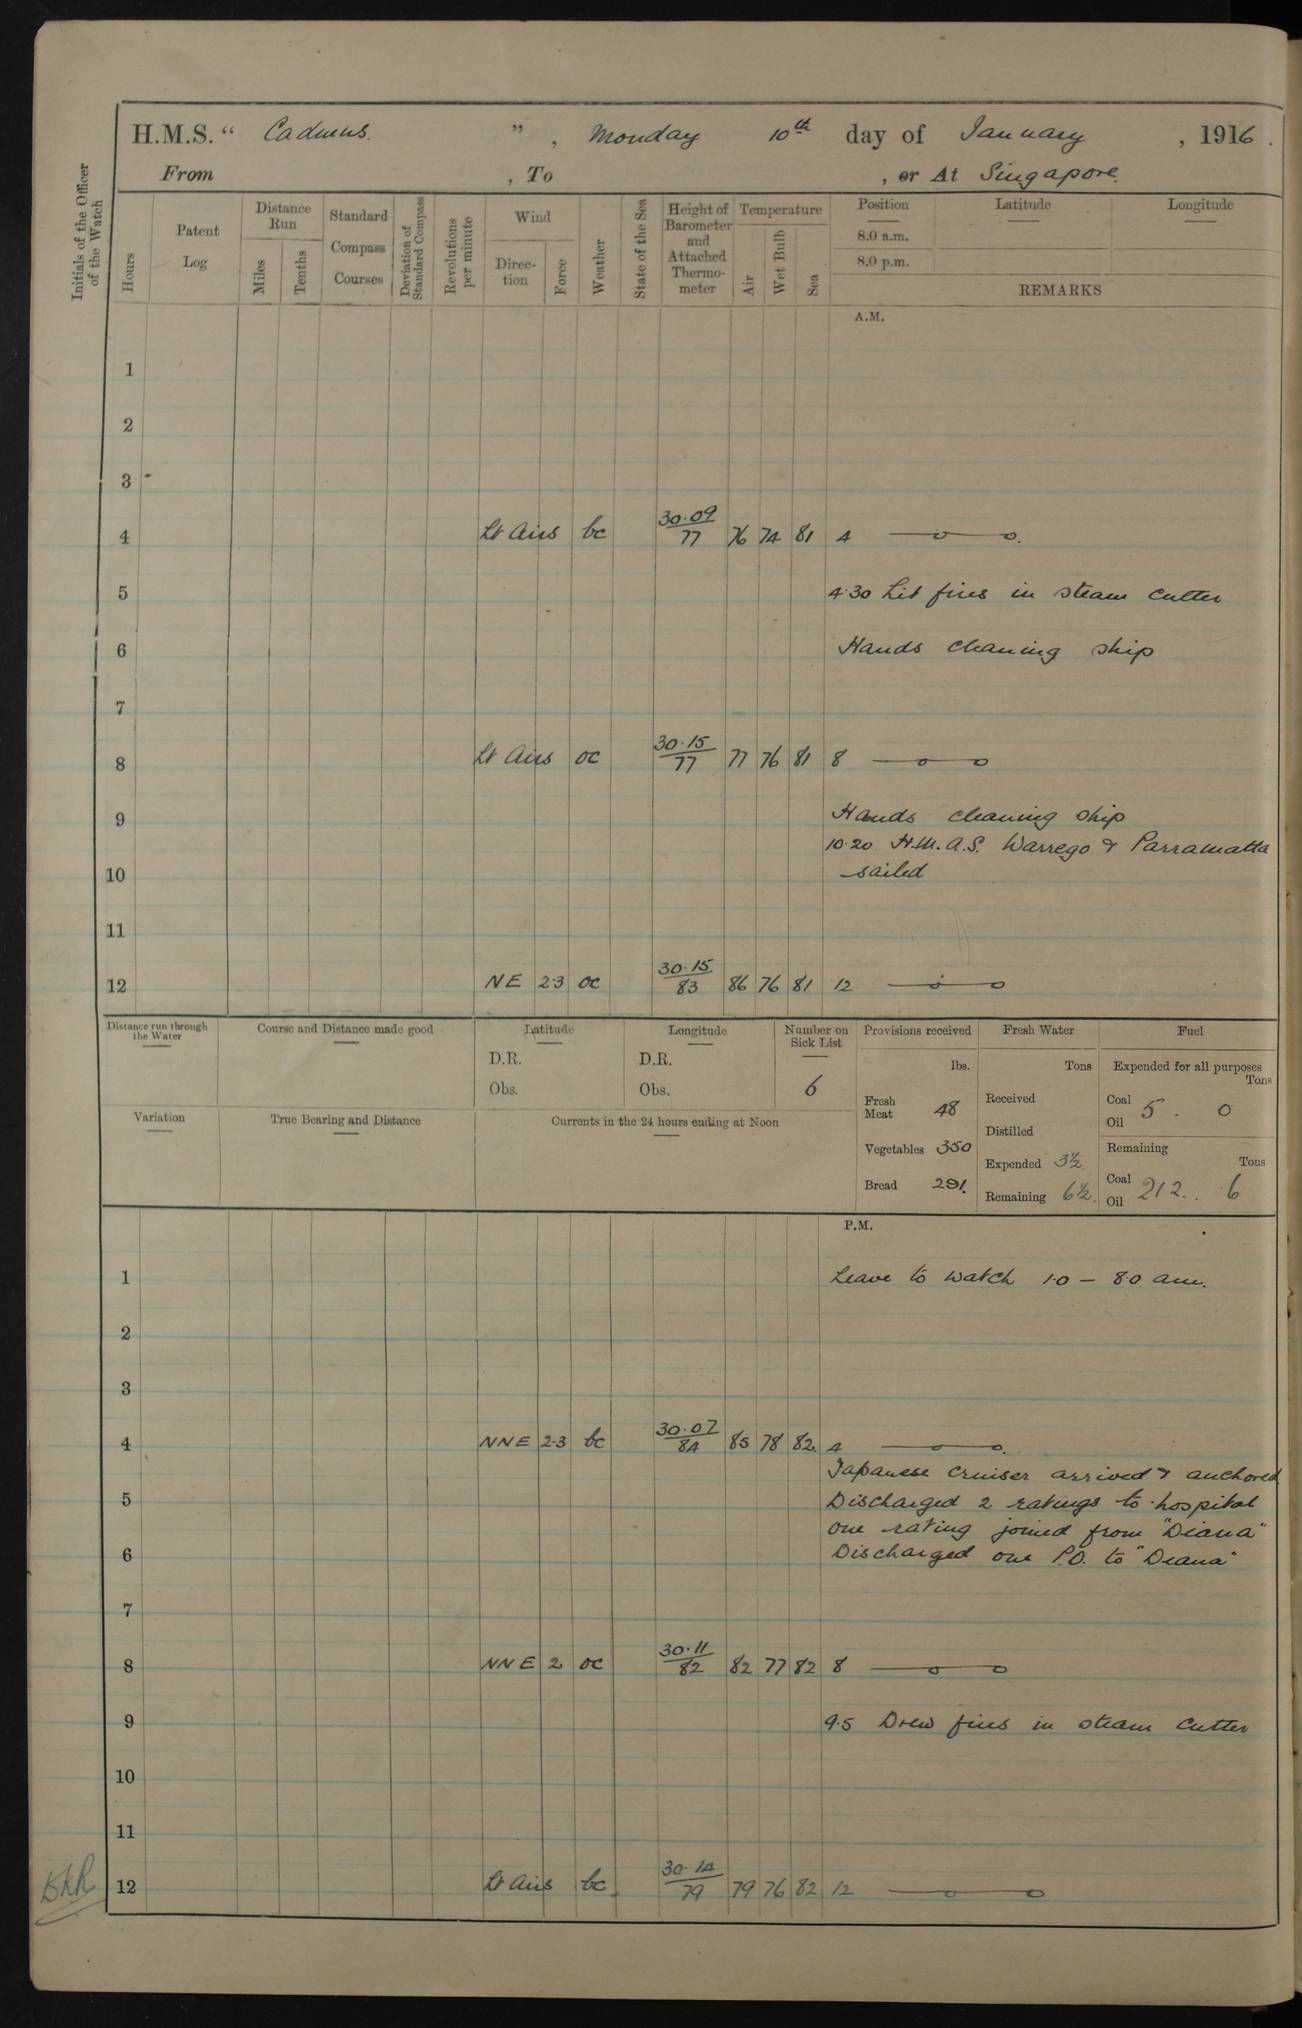 H.M.S. “ Cadmus ” , Monday 10th day of January , 1916 .
From , To , or At Singapore.
Initials of the Officer of the Watch
Hours
Patent Log
Distance Run
Miles
Tenths
Standard Compass Courses
Deviation of Standard Compass
Revolutions per minute
Wind
Direction
Force
Weather
State of the Sea
Height of Barometer and Attached Thermometer
Temperature
Air
Wet Bulb
Sea
Position
Latitude
Longitude
8.0 a.m.
8.0 p.m.
REMARKS
A.M.
1
2
3
4 Lt Airs bc 30.09/77 76 74 81 4 —o—o.
5 4.30 Lit fires in steam cutter
6 Hands cleaning ship
7
8 Lt Airs oc 30.15/77 77 76 81 8 —o—o
9 Hands cleaning ship
10.20 H.M.A.S. Warrego & Parramatta
10 sailed
11
12 NE 2.3 oc 30.15/83 86 76 81 12 —o—o
Distance run through the Water
Course and Distance made good
Latitude
D.R.
Obs.
Longitude
D.R.
Obs.
Number on Sick List
6
Variation
True Bearing and Distance
Currents in the 24 hours ending at Noon
Provisions received
lbs.
Fresh Meat 48
Vegetables 350
Bread 291.
Fresh Water
Tons
Received
Distilled
Expended 3½
Remaining 6½.
Fuel
Expended for all purposes
Tons
Coal Oil 5 . 0
Remaining
Tons
Coal Oil 212 . . 6
P.M.
1 Leave to watch 1.0 – 8.0 am.
2
3
4 NNE 2.3 bc 30.07/84 85 78 82. 4 —o—o.
Japanese cruiser arrived & anchored.
5 Discharged 2 ratings to hospital
one rating joined from "Diana"
6 Discharged one P.O. to "Diana"
7
8 NNE 2 oc 30.11/82 82 77 82 8 —o—o
9 9.5 Drew fires in steam cutter
10
11
12 Lt Airs bc. 30.14/79 79 76 82 12 —o—o